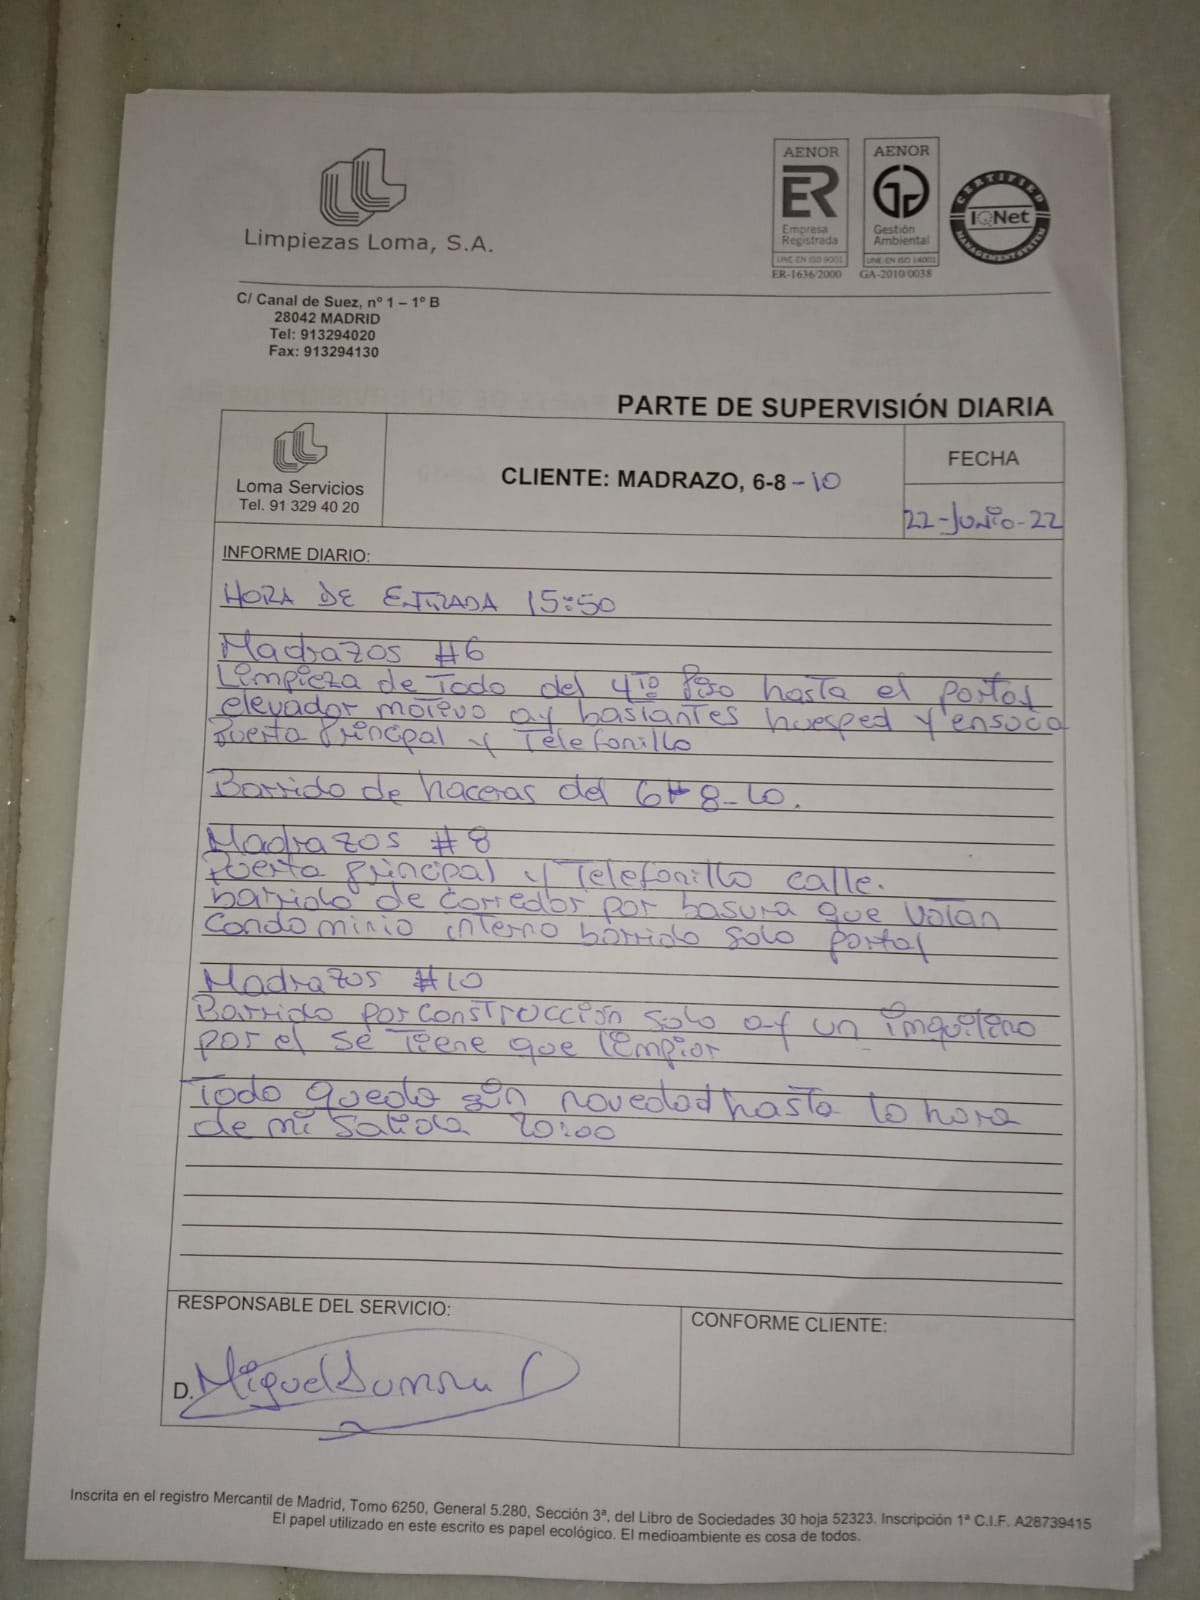 Limpiezas Loma, S.A.
AENOR
ER
Empresa
Registrada
UNE-EN ISO 9001
ER-1636/2000
AENOR
Gestión
Ambiental
UNE-EN ISO 14001
GA-2010/0038
CERTIFIED
IQNet
MANAGEMENT SYSTEM
C/ Canal de Suez, nº 1 – 1º B
28042 MADRID
Tel: 913294020
Fax: 913294130
PARTE DE SUPERVISIÓN DIARIA
Loma Servicios
Tel. 91 329 40 20
CLIENTE: MADRAZO, 6-8 -10
FECHA
22-Junio-22
INFORME DIARIO:
HORA DE ENTRADA 15:50
Madrazos #6
Limpieza de Todo del 4to Piso hasta el portal
elevador motivo ay bastantes huesped y ensucia
Puerta Principal y Telefonillo
Barrido de haceras del 6-8-10.
Madrazos #8
Puerta principal y Telefonillo calle.
barrido de corredor por basura que Votan
Condominio interno barrido solo portal
Madrazos #10
Barrido por construcción solo ay un imquilino
por el se tiene que limpiar
Todo queda sin novedad hasta la hora
de mi salida 20:00
RESPONSABLE DEL SERVICIO:
D. Miguel
CONFORME CLIENTE:
Inscrita en el registro Mercantil de Madrid, Tomo 6250, General 5.280, Sección 3ª, del Libro de Sociedades 30 hoja 52323. Inscripción 1ª C.I.F. A28739415
El papel utilizado en este escrito es papel ecológico. El medioambiente es cosa de todos.